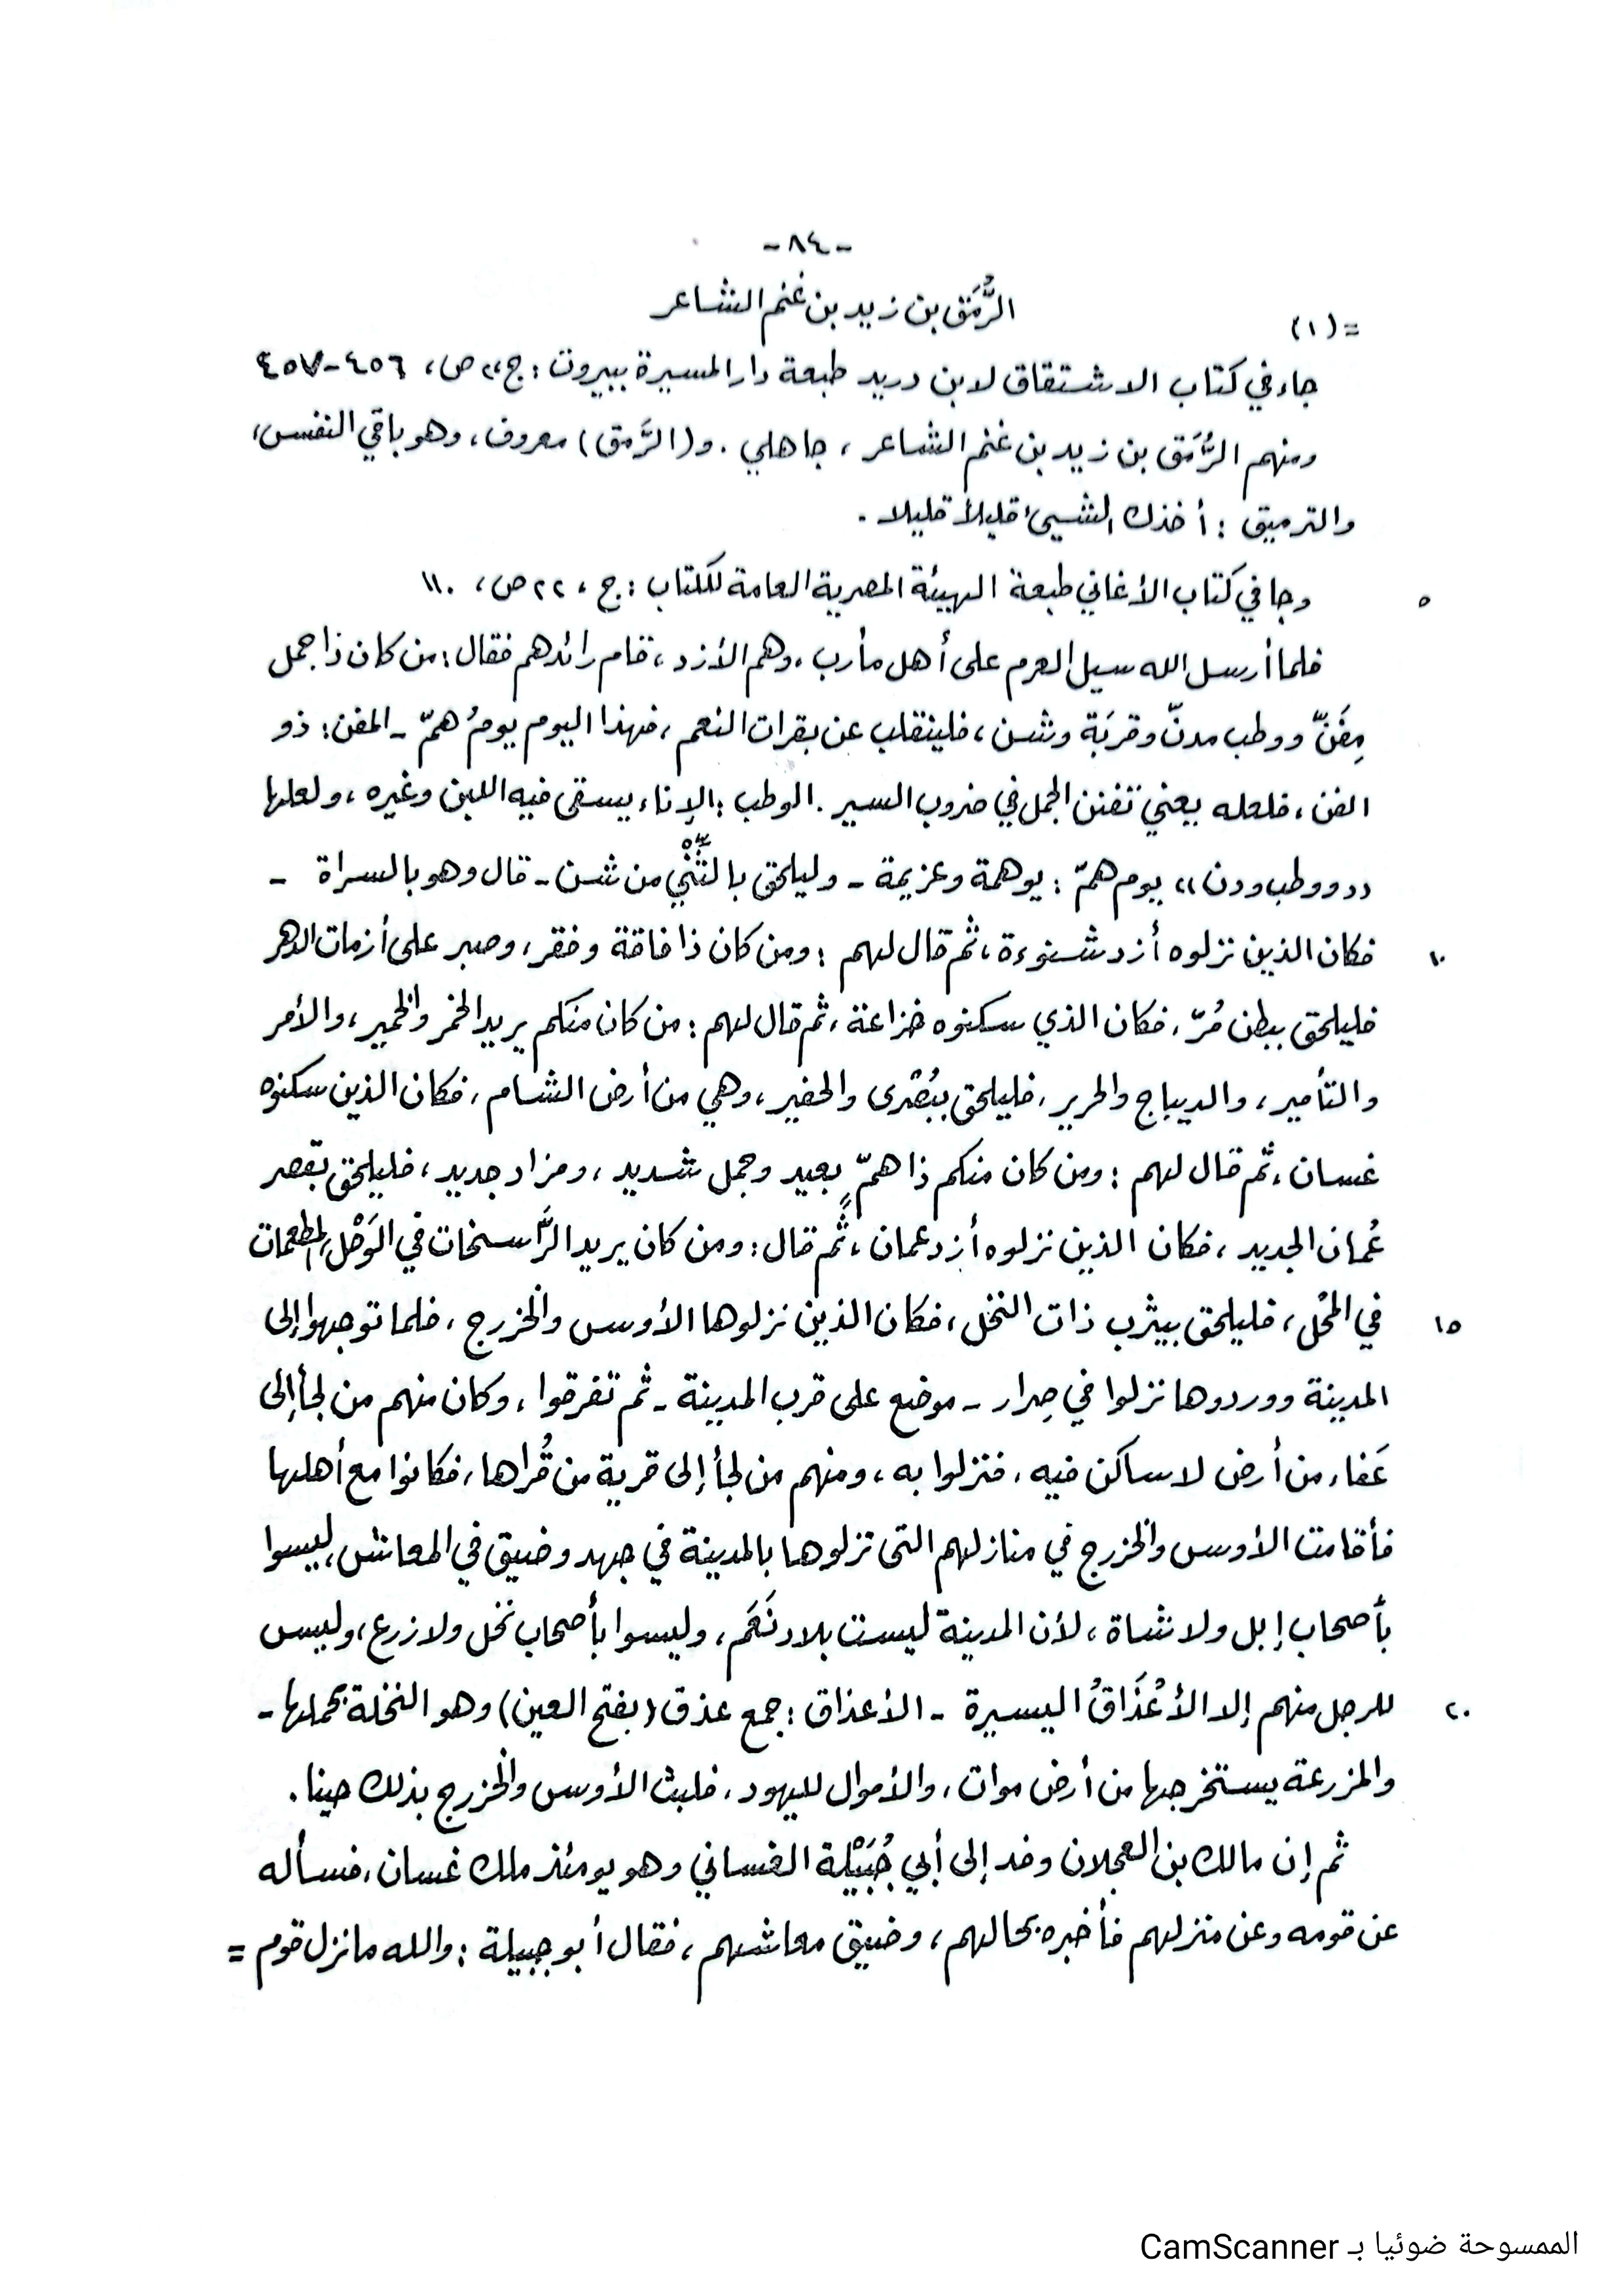 -٨٤-
=(١) الرُّمَق بن زيد بن غنم الشاعر
جاء في كتاب الاشتقاق لابن دريد طبعة دار المسيرة ببيروت : ج،، ص، ٤٥٦-٤٥٧
ومنهم الرُّمَق بن زيد بن غنم الشاعر ، جاهلي . و(الرَّمق) معروف، وهو باقي النفس،
والترميق : أخذك الشيئ قليلاً قليلا .
٥ وجا في كتاب الأغاني طبعة الهيئة المصرية العامة للكتاب : ج ، ٢٢ ص، ١١٠
فلما أرسل الله سيل العرم على أهل مأرب ،وهم الأزد ، قام رائدهم فقال : من كان ذا جمل
مِفَنّ ووطب مدنّ وقربَة وشن ، فلينقلب عن بقرات النعم ، فهذا اليوم يومُ همّ - المفن : ذو
الفن ، فلعله يعني تفنن الجمل في ضروب السير . الوطب : الإناء يسقى فيه اللبن وغيره ، ولعلها
((ووطب ودن)) يوم همّ : يوهمة وعزيمة - وليلحق بالثَّنْي من شن - قال وهو بالسراة -
١٠ فكان الذين نزلوه أزد شنوءة ، ثم قال لهم : ومن كان ذا فاقة وفقر ، وصبر على أزمات الدهر
فليلحق ببطن مُرّ ، فكان الذي سكنوه خزاعة ، ثم قال لهم : من كان منكم يريد الخمر والخمير ، والأمر
والتأمير ، والديباج والحرير ، فليلحق ببُصْرى والحفير ، وهي من أرض الشام ، فكان الذين سكنوه
غسان ، ثم قال لهم : ومن كان منكم ذا همّ بعيد وجمل شديد ، ومزاد جديد ، فليلحق بقصر
عُمان الجديد ، فكان الذين نزلوه أزد عمان ، ثُم قال : ومن كان يريد الرَّاسخات في الوَحْل المطعمات
١٥ في المحْل ، فليلحق بيثرب ذات النخل ، فكان الذين نزلوها الأوس والخزرج ، فلما توجهوا إلى
المدينة ووردوها نزلوا في صِرار - موضع على قرب المدينة - ثم تفرقوا ، وكان منهم من لجأ إلى
عَفاء من أرض لا ساكن فيه ، فنزلوا به ، ومنهم من لجأ إلى قرية من قُراها ، فكانوا مع أهلها
فأقامت الأوس والخزرج في منازلهم التى نزلوها بالمدينة في جهد وضيق في المعاش ، ليسوا
بأصحاب إبل ولا شاة ، لأن المدينة ليست بلاد نَعَم ، وليسوا بأصحاب نخل ولا زرع ، وليس
٢٠ للرجل منهم إلا الأعْذَاقُ اليسيرة - الأعذاق : جمع عذق (بفتح العين) وهو النخلة بحملها -
والمزرعة يستخرجها من أرض موات ، والأموال لليهود ، فلبث الأوس والخزرج بذلك حينا .
ثم إن مالك بن العجلان وفد إلى أبي جُبَيْلة الغساني وهو يومئذ ملك غسان ، فسأله
عن قومه وعن منزلهم فأخبره بحالهم ، وضيق معاشهم ، فقال أبو جبيلة : والله ما نزل قوم =
الممسوحة ضوئيا بـ CamScanner